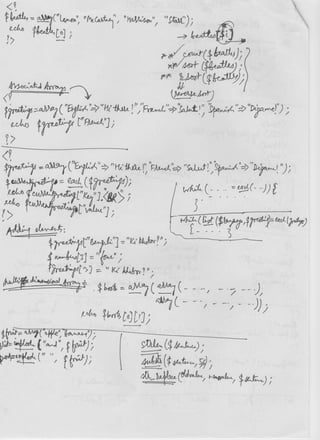 <?
$beatles = array("Lenon", "McCartney", "Harrison", "Starr");
echo $beatles[0];
?>
→ beatles[$i]
** count($beatles);
** sort($beatles);
** rsort($beatles);
(reverse sort)
Associated Arrays
$greetings = array("English"=>"Hi there!", "French"=>"Salut!", "Spanish"=>"Digame!");
echo $greetings["French"];
?>
<?
$greetings = array("English"=>"Hi there!", "French"=>"Salut!", "Spanish"=>"Digame!");
$currentgreeting = each($greetings);
echo $currentgreeting["key"].
echo $currentgreeting["value"];
?>
while (--- = each(--)){
}
while(list(
}
Adding elements:
$greetings["Bengali"] = "Ki khobor!";
$number[3] = "four";
$greetings[] = "Ki khobor!";
Multi dimensional Arrays: $book = array(array(---, --, --),
array(---, --, --));
echo $book[0][1];
$fruit = array("apple", "banana");
implode("and", $fruit);
explode(" ", $fruit);
strlen($sentence);
substr($sentence, 5);
str_replace(oldvalue, newvalue, $sentence);